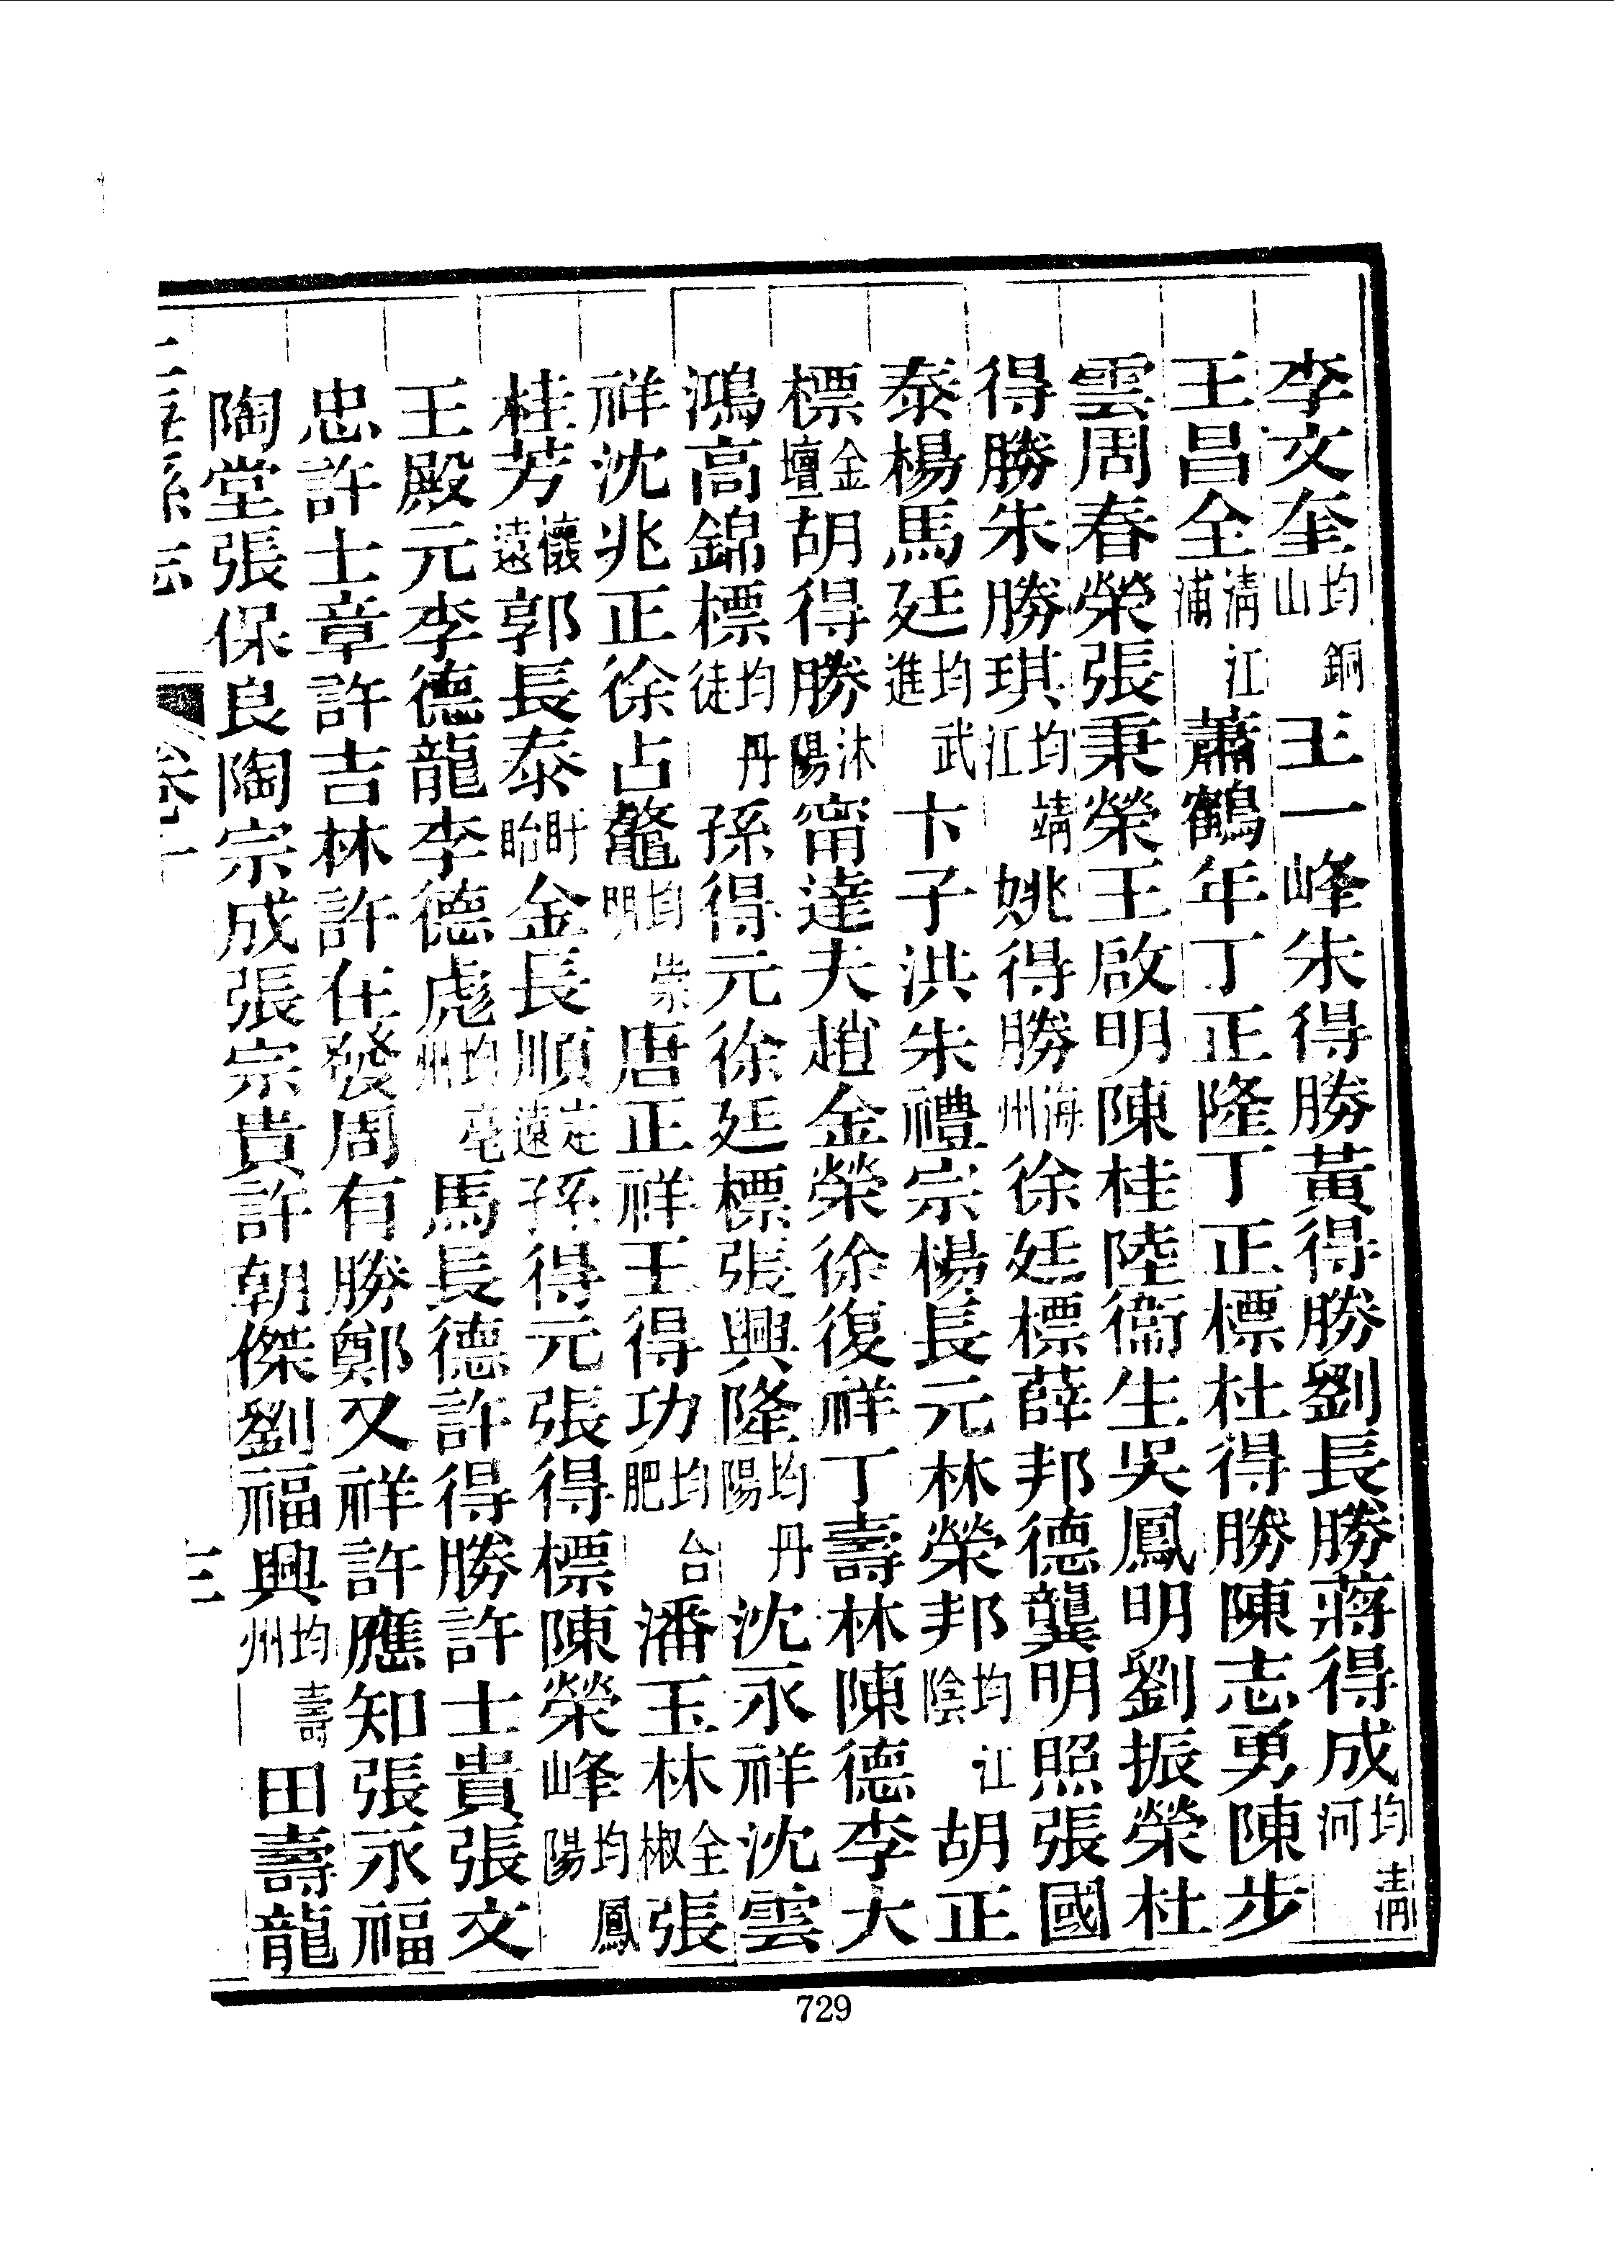 李文奎均銅山王一峰朱得勝黃得勝劉長勝蔣得成均清河
王昌全清江浦蕭鶴年丁正隆丁正標杜得勝陳志勇陳步
雲周春榮張秉榮王啟明陳桂陸衞生吳鳳明劉振榮杜
得勝朱勝琪均靖江姚得勝海州徐廷標薛邦德龔明照張國
泰楊馬廷均武進卞子洪朱禮宗楊長元林榮邦均江陰胡正
標金壇胡得勝沭陽甯達夫趙金榮徐復祥丁壽林陳德李大
鴻高錦標均丹徒孫得元徐廷標張興隆均丹陽沈永祥沈雲
祥沈兆正徐占鼇均崇明唐正祥王得功均合肥潘玉林全椒張
桂芳懷遠郭長泰盱眙金長順定遠孫得元張得標陳榮峰均鳳陽
王殿元李德龍李德彪均亳州馬長德許得勝許士貴張文
忠許士章許吉林許在發周有勝鄭又祥許應知張永福
陶堂張保良陶宗成張宗貴許朝傑劉福興均壽州田壽龍
三
729